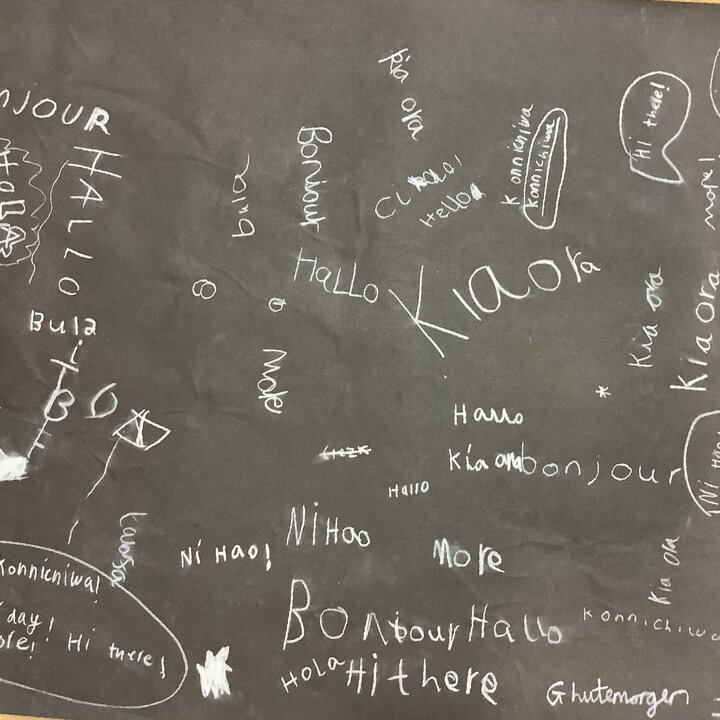 Kia ora
NJOUR
Hi there!
HALLO
Bonjour
Konnichiwa
Konnichiwa
Bula
Hello
more!
HaLLo
Kia Ora
Kia ora
Kia ora
Bula
More
Hallo
Kia ora
bonjour
Ni Hao
Hallo
Ni Hao
Ni Hao!
More
Kia Ora
Konnichiwa!
day!
ore!
Hi there!
Bonjour
Hallo
Konnichiwa
HOLA
Hi there
Ghutemorgen